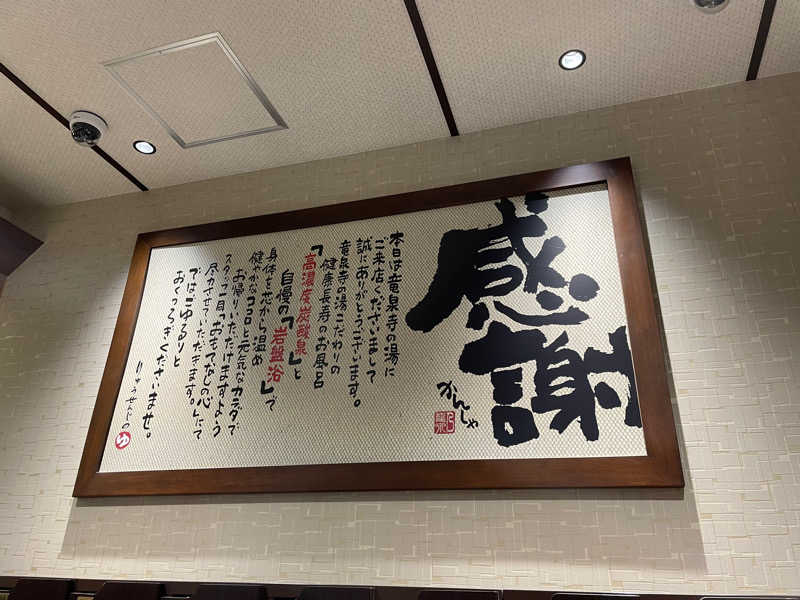 感謝
かんしゃ
本日は竜泉寺の湯に
ご来店くださいまして
誠にありがとうございます。
竜泉寺の湯こだわりの
健康長寿のお風呂
「高濃度炭酸泉」と
自慢の「岩盤浴」で
身体を芯から温め
健やかなココロと元気なカラダで
お帰りいただけますよう
スタッフ一同、おもてなしの心にて
尽力させていただきます。
ではごゆるりと
おくつろぎくださいませ。
りゅうせんじの
ゆ